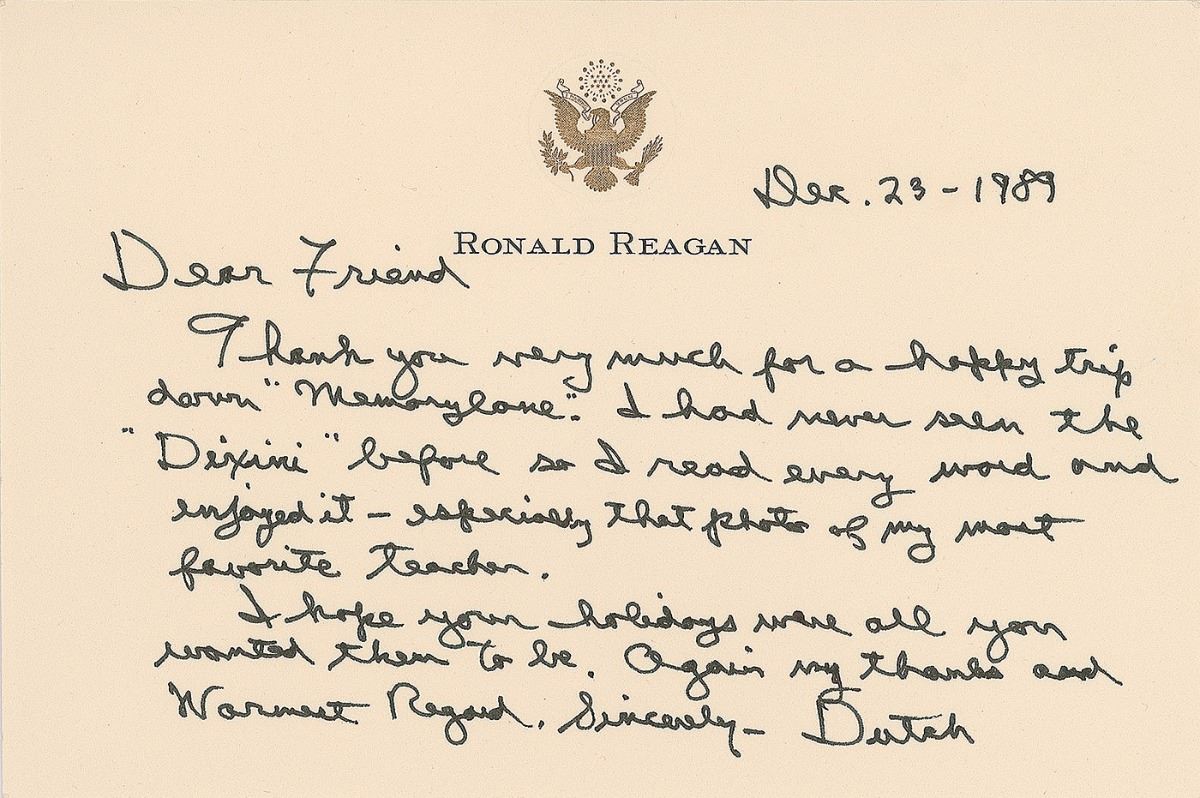 Dec. 23 - 1989
RONALD REAGAN
Dear Friend
Thank you very much for a happy trip
down "Memorylane". I had never seen the
"Dixini" before so I read every word and
enjoyed it – especially that photo of my most
favorite teacher.
I hope your holidays were all you
wanted them to be. Again my thanks and
Warmest Regard. Sincerely – Dutch